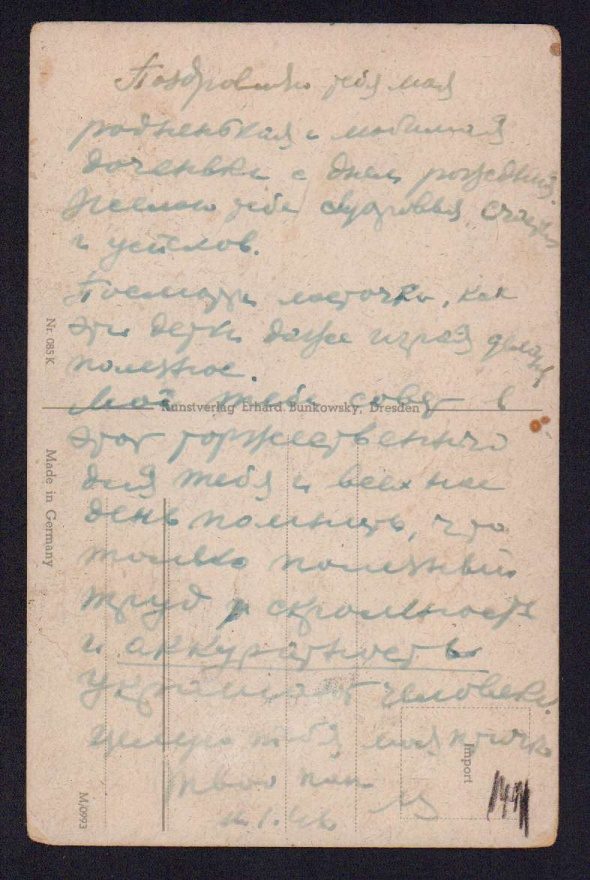 Поздровляю тебя моя
родненькая и любимая
доченька с днем рождения.
Желаю тебе здоровья, счастья
и успехов.
Посмотри ласточка, как
эти детки даже играя делают
полезное.
Мой тебе совет в
Kunstverlag Erhard Bunkowsky, Dresden
этот торжественный
для тебя и всех нас
день помнить, что
только полезный
труд и скромность
и аккуратность
украшают человека.
Целую тебя моя птичка
Твой папа
1.46
Nr. 085 K
Made in Germany
M/0993
Import